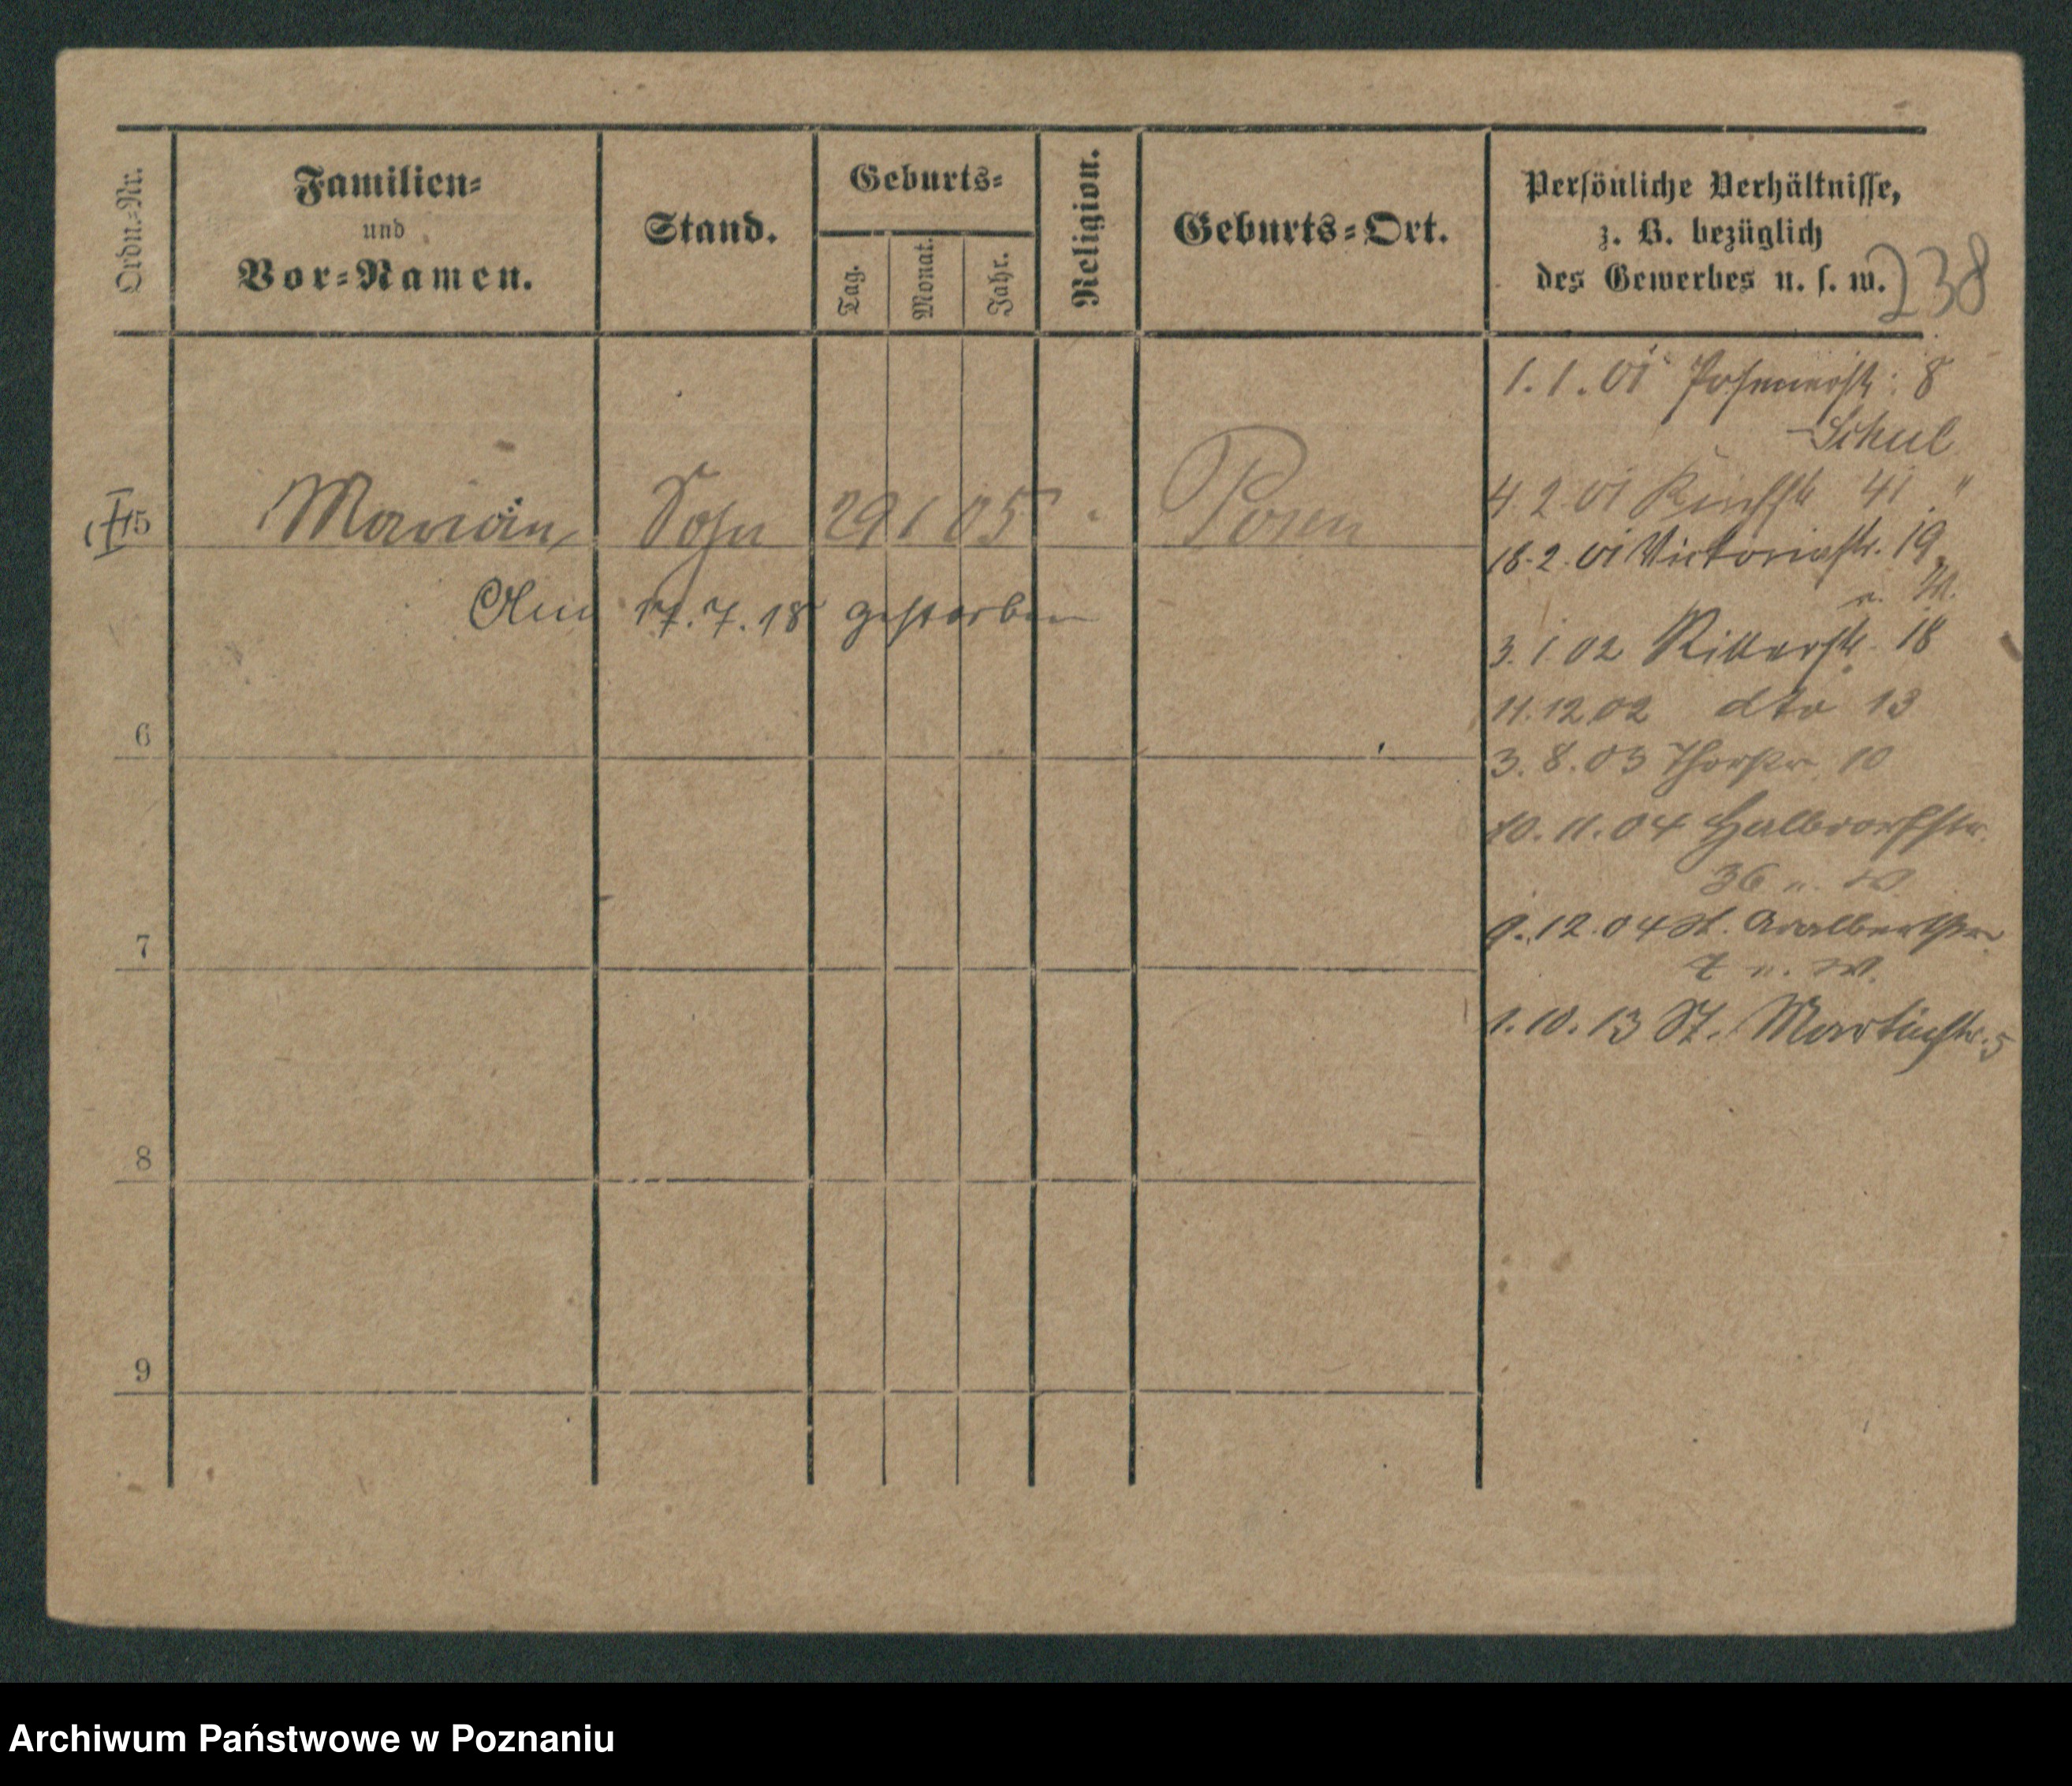 Ordn.=Nr.
Familien=
und
Vor=Namen.
Stand.
Geburts=
Tag.
Monat.
Jahr.
Religion.
Geburts=Ort.
Persönliche Verhältnisse,
z. B. bezüglich
des Gewerbes u. s. w.
238
1. 1. 01 Posenerstr. 8
Schul
4. 2. 01 41 "
5 Marian Sohn 29 1 05 Posen
18. 2. 01 Victoriastr. 19
17. 7. 18 gestorben
3. 1. 02 Ritterstr. 18
11. 12. 02 dto 13
6
3. 8. 03 Thorstr. 10
10. 11. 04 Halbdorfstr.
36 u. W
9. 12. 04 St. Adalbertstr
7 u. W.
7
1. 10. 13 St. Martinstr. 5
8
9
Archiwum Państwowe w Poznaniu